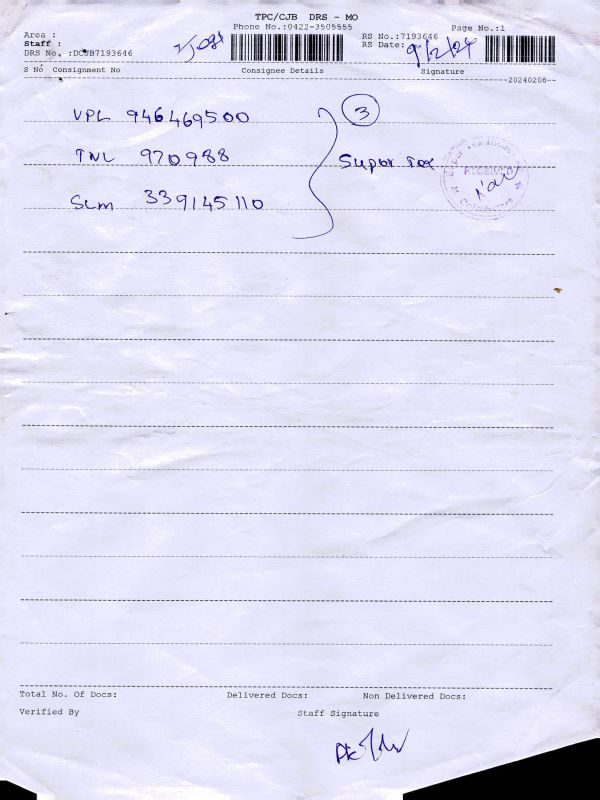 TPC/CJB DRS - MO
Phone No.:0422-3505555
Page No.:1
Area :
RS No.:7193646
Staff :
RS Date: 9/2/24
DRS No. :DCJB7193646
S No Consignment No Consignee Details Signature
--20240208--
VPL 946469500
3
TNL 970988
Super Tex
RECEIVED
SLM 339145110
Total No. Of Docs: Delivered Docs: Non Delivered Docs:
Verified By Staff Signature